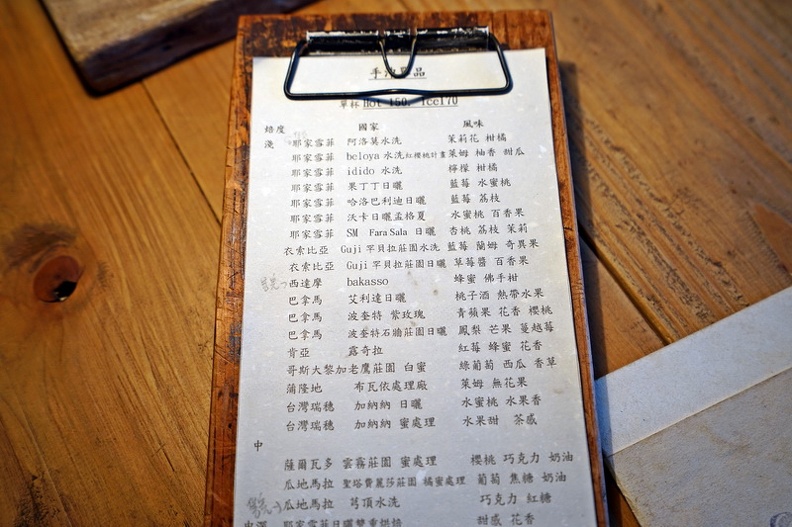 手沖單品
單杯 Hot 150. ice170
焙度 國家 風味
淺 耶家雪菲 阿洛莫水洗 茉莉花 柑橘
耶家雪菲 beloya 水洗紅櫻桃計畫 萊姆 柚香 甜瓜
耶家雪菲 idido 水洗 檸檬 柑橘
耶家雪菲 果丁丁日曬 藍莓 水蜜桃
耶家雪菲 哈洛巴利迪日曬 藍莓 荔枝
耶家雪菲 沃卡日曬孟格夏 水蜜桃 百香果
耶家雪菲 SM Fara Sala 日曬 杏桃 荔枝 茉莉
衣索比亞 Guji 罕貝拉莊園水洗 藍莓 蘭姆 奇異果
衣索比亞 Guji 罕貝拉莊園日曬 草莓醬 百香果
西達摩 bakasso 蜂蜜 佛手柑
巴拿馬 艾利達日曬 桃子酒 熱帶水果
巴拿馬 波奎特 紫玫瑰 青蘋果 花香 櫻桃
巴拿馬 波奎特石牆莊園日曬 鳳梨 芒果 蔓越莓
肯亞 露奇拉 紅莓 蜂蜜 花香
哥斯大黎加老鷹莊園 白蜜 綠葡萄 西瓜 香草
蒲隆地 布瓦依處理廠 萊姆 無花果
台灣瑞穗 加納納 日曬 水蜜桃 水果香
台灣瑞穗 加納納 蜜處理 水果甜 茶感
中
薩爾瓦多 雲霧莊園 蜜處理 櫻桃 巧克力 奶油
瓜地馬拉 聖塔費麗莎莊園 橘蜜處理 葡萄 焦糖 奶油
瓜地馬拉 芎頂水洗 巧克力 紅糖
中深 耶家雪菲日曬雙重烘焙 甜感 花香